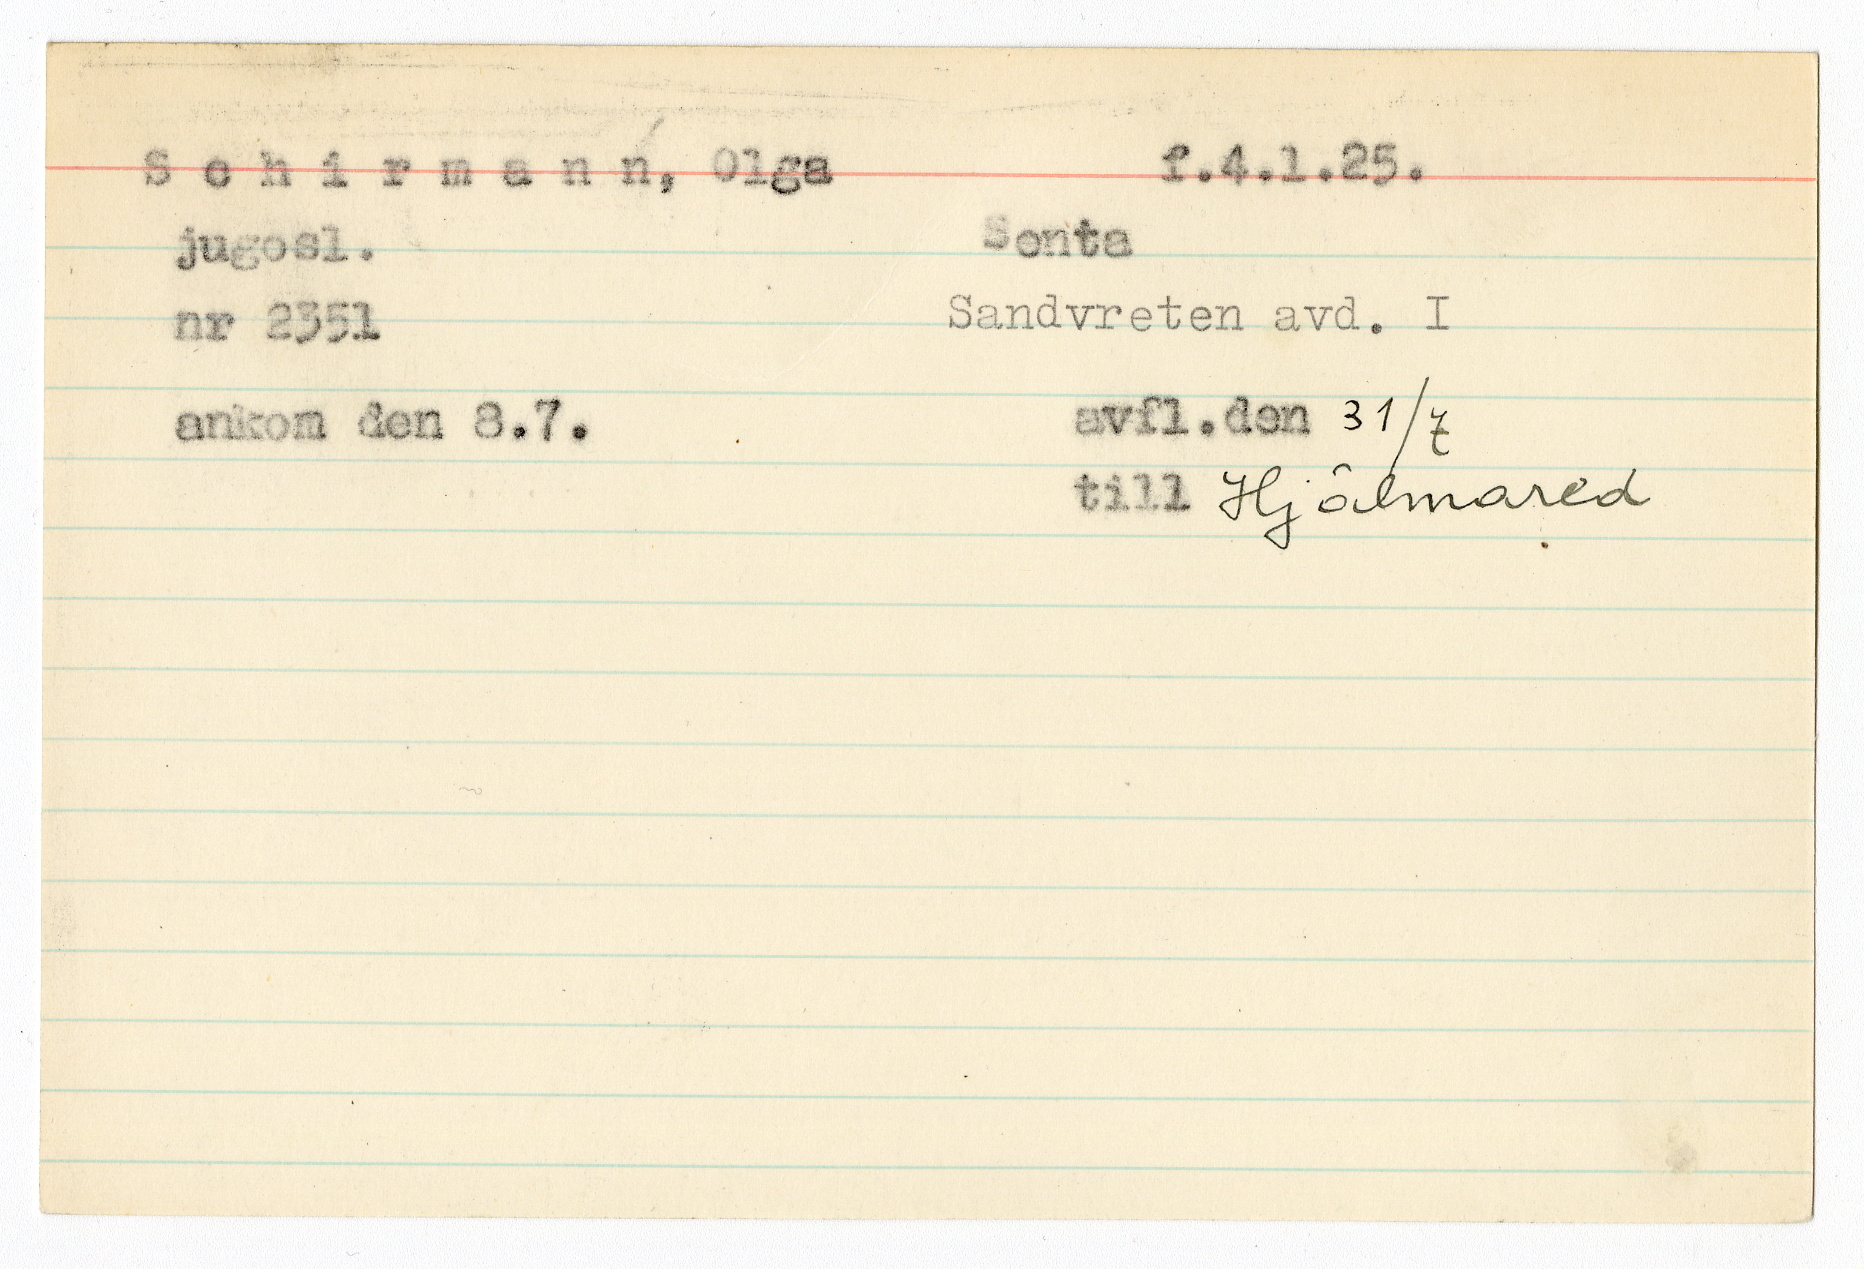 Schirmann, Olga f.4.1.25.
jugosl. Senta
nr 2351 Sandvreten avd. I
ankom den 8.7. avfl.den 31/7
till Hjälmared